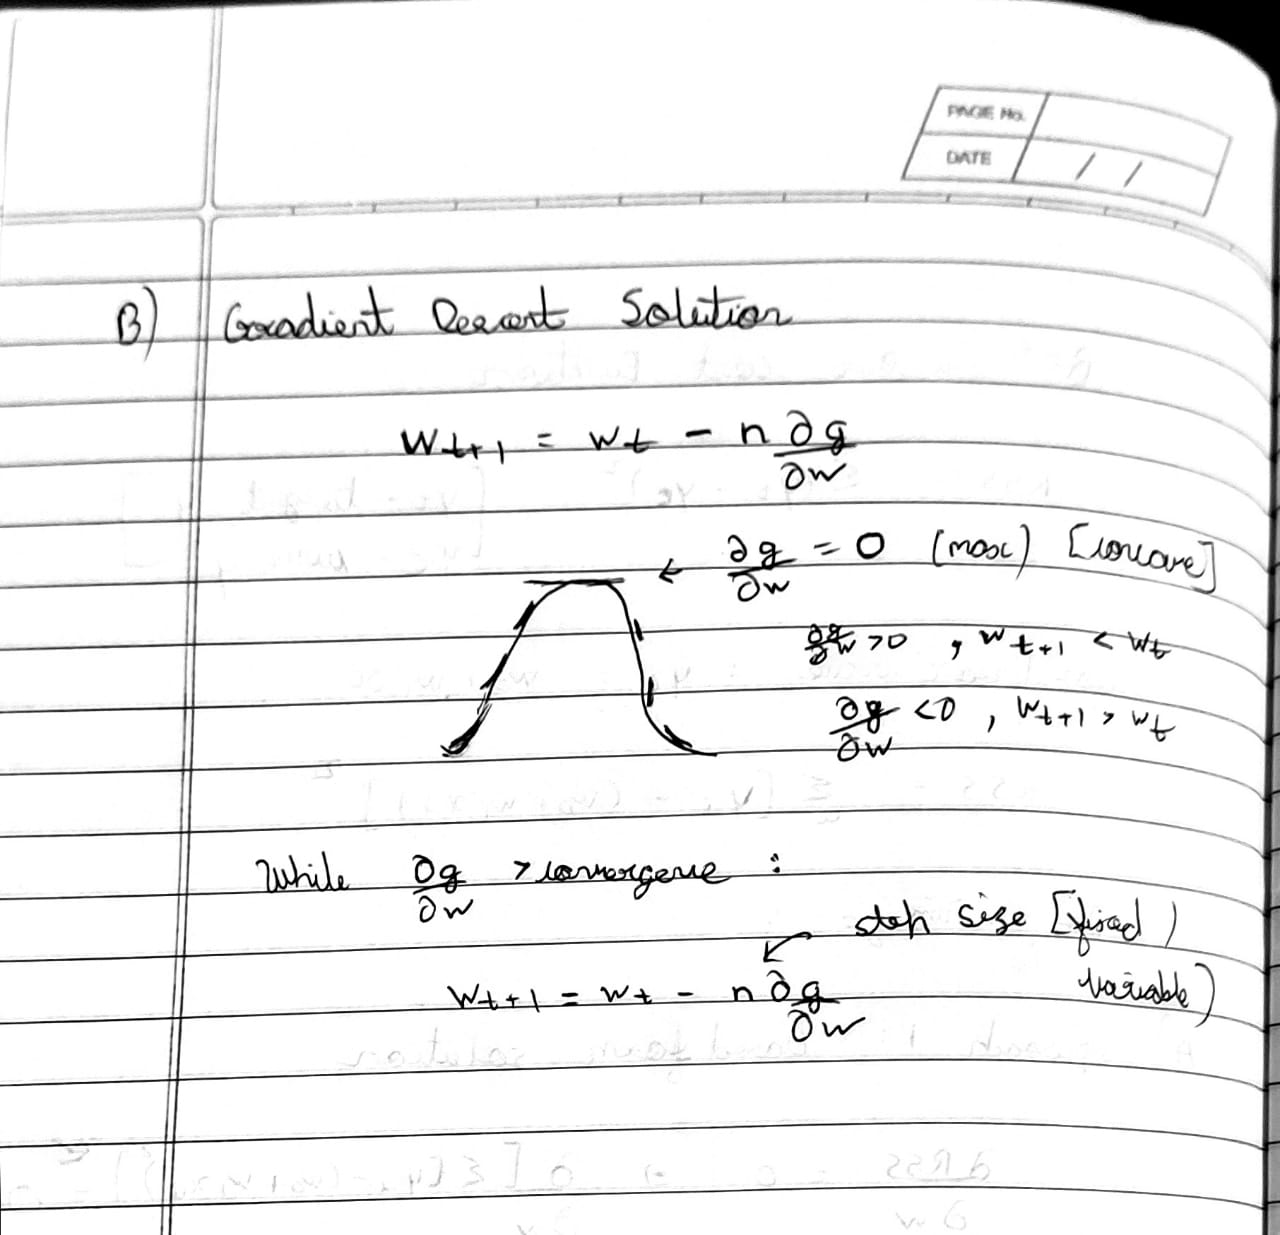 PAGE No.
DATE / /
B) Gradient Descent Solution
w t+1 = w t - n ∂g/∂w
← ∂g/∂w = 0 (max) [concave]
∂g/∂w >0 , w t+1 < w t
∂g/∂w <0 , w t+1 > w t
While ∂g/∂w > convergence :
step size [fixed /
variable)
w t+1 = w t - n ∂g/∂w